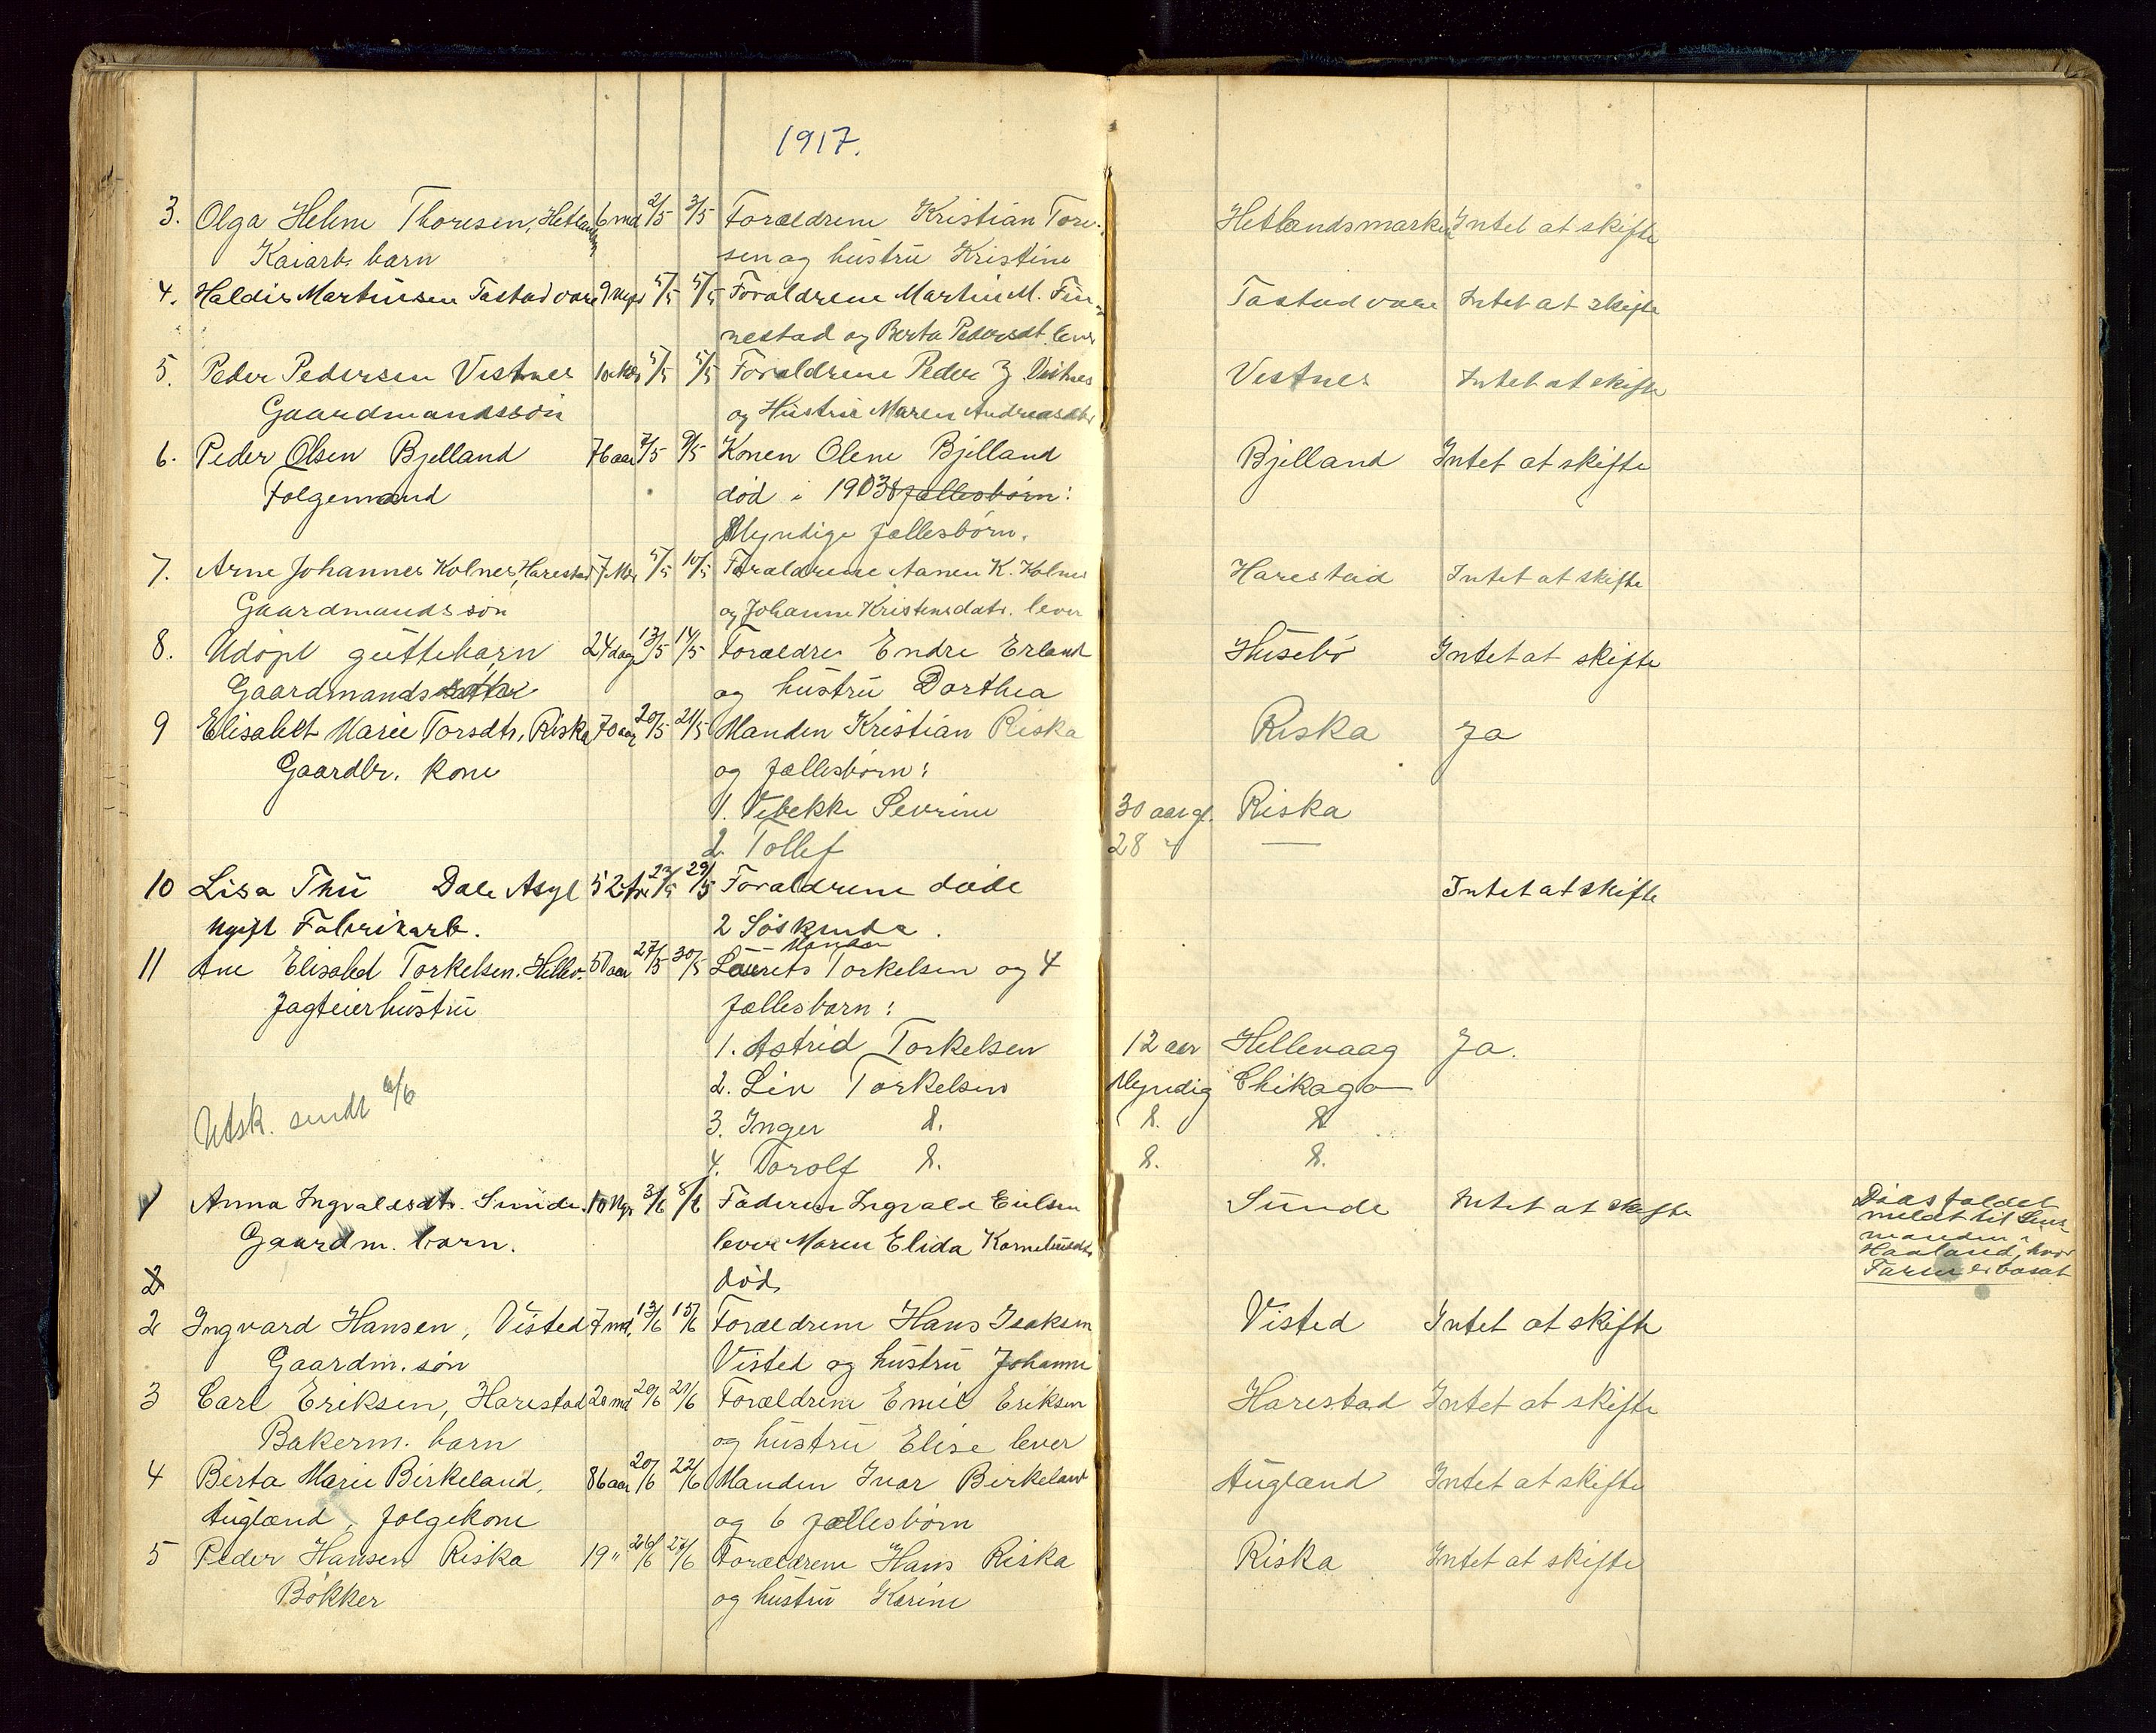 1917.
3. Olga Helene Thoresen, Hetland 6 md 2/5 3/5 Forældrene Kristian Tore- Hetlandsmarken Intet at skifte
Kaiarb. barn sen og hustru Kristine
4. Haldis Martinsen Tastadvare 9 Mgr 5/5 5/5 Foraldrene Martin M. Fin- Tastadvare Intet at skifte
nestad og Berta Pedersdt. lever
5. Peder Pedersen Vestnes 10 Mdr 5/5 5/5 Foraldrene Peder J. Vestnes Vestnes Intet at skifte
Gaardmandssön og Hustru Maren Andreasdtr
6. Peder Olsen Bjelland 76 aar 7/5 9/5 Konen Olene Bjelland Bjelland Intet at skifte
Folgemand död i 1903 8 fællesbörn:
Myndige fællesbörn.
7. Arne Johannes Kolnes, Harestad 7 Mdr 5/5 10/5 Foraldrene Aanen K. Kolnes Harestad Intet at skifte
Gaardmandssön og Johanne Kristensdatr. lever
8. Udöpt guttebarn 24 dage 13/5 14/5 Forældre Endre Erland Husebö Intet at skifte
Gaardmands og hustru Dorthea
9 Elisabet Marie Torsdtr, Riska 70 aar 20/5 21/5 Manden Kristian Riska Riska Ja
Gaardbr. kone og fællesbörn:
1. Vebekke Sevrine 30 aar gl. Riska
2. Tollef 28 " —
10 Lisa Thu Dale Asyl 52 Aar 23/5 29/5 Foraldrene döde Intet at skifte
Ugift Fabrikarb. 2 Söskende.
Manden
11 Ane Elisabed Torkelsen. Hellev. 50 aar 27/5 30/5 Laurets Torkelsen og 4
Jagteierhustru fællesbarn:
1. Astrid Torkelsen 12 aar Hellevaag Ja.
2. Lin Torkelsen Myndig Chikago
Utsk. sendt 6/6
3. Inger d. d. d.
4. Torolf d. d. d.
1 Anna Ingvaldsdtr. Sunde. 10 Mgr 3/6 8/6 Faderen Ingvald Eielsen Sunde Intet at skifte Dödsfaldet
meldt til Lens-
manden i
Haaland, hvor
Faren er bosat
Gaardm. barn. lever Maren Elida Korneliusdtr
2 död
2 Ingvard Hansen, Visted 7 md. 13/6 15/6 Forældrene Hans Isaksen Visted Intet at skifte
Gaardm. sön Visted og hustru Johanne
3 Carl Eriksen, Harestad 20 md 20/6 21/6 Forældrene Emil Eriksen Harestad Intet at skifte
Bakerm. barn og hustru Elise lever
4 Berta Marie Birkeland, 86 aar 20/6 22/6 Manden Ivar Birkeland Augland Intet at skifte
Augland, folgekone og 6 fællesbörn
5 Peder Hansen Riska 19 " 26/6 27/6 Forældrene Hans Riska Riska Intet at skifte
Bökker og hustru Karine